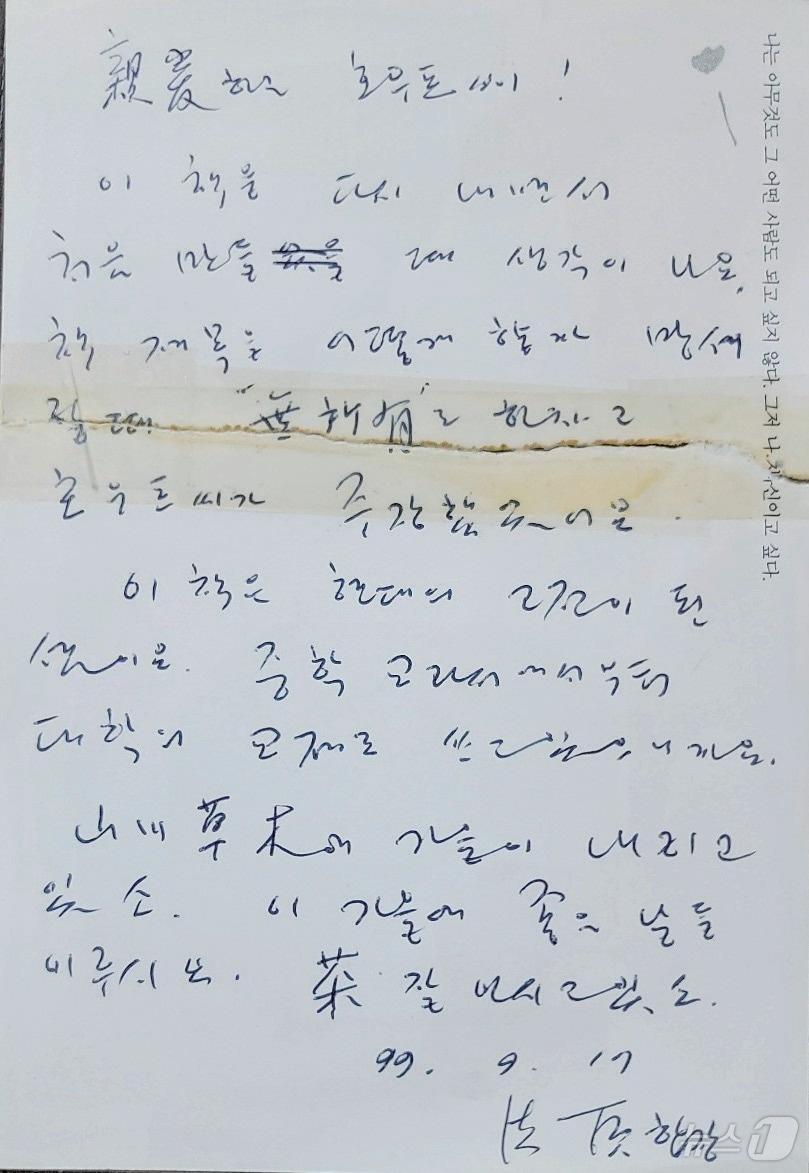 親愛하는 호우트씨!
이 책을 다시 내면서
처음 만들 때 생각이 나오.
책 제목을 어떻게 할까 망서
릴 때 "無所有"로 하자고
호우트씨가 주장했었어요.
이 책은 현대의 고전이 된
셈이오. 중학 교과서에서부터
대학의 교재로 쓰고있으니까요.
山에 草木에 가을이 내리고
있소. 이 가을에 좋은 날들
이루시오. 茶 잘 마시고있소.
99. 9. 17
法頂 합장
나는 아무것도 그 어떤 사람도 되고 싶지 않다. 그저 나 자신이고 싶다.
뉴스1